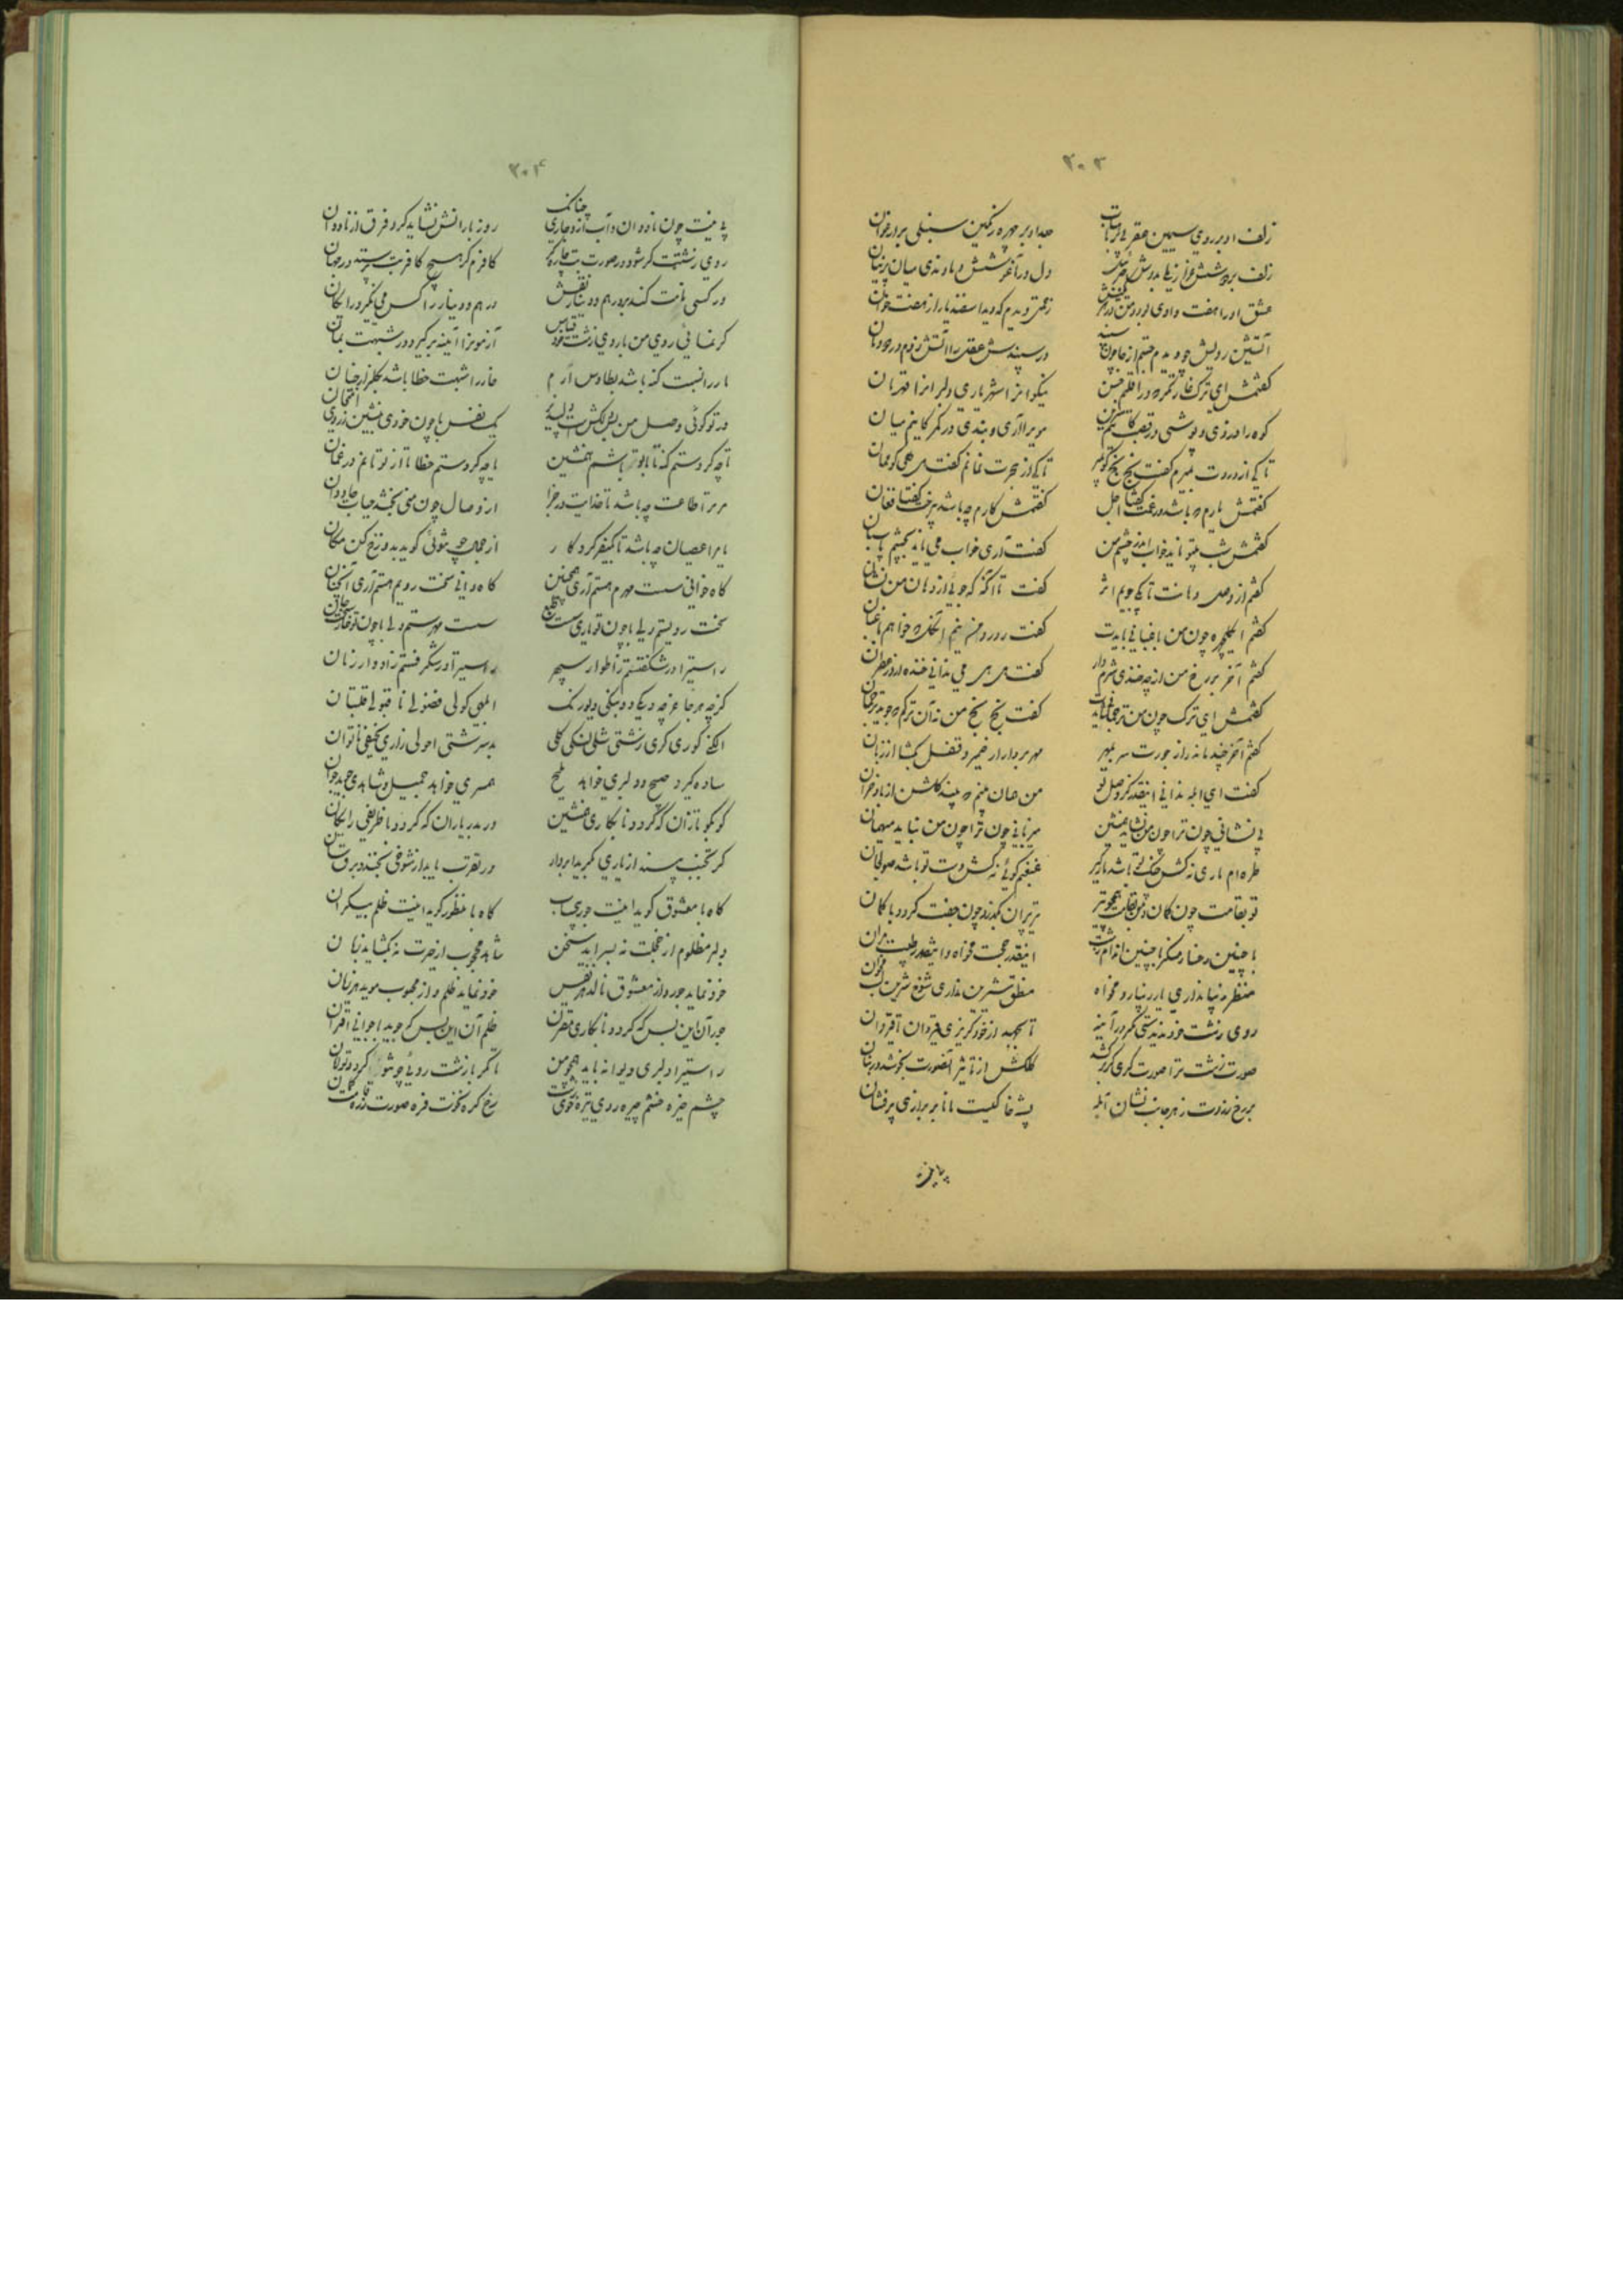 ۳۰۳
زلف او بر روی سیمین عقربی بر ماهتاب
جعد او بر چهره رنگین سنبلی بر ارغوان
زلف بر دوشش
دل در آغوشش میان پرنیان
عشق او را هفت وادی بود و من در هر
زحمتی دیدم که دید اسفندیار از هفتخوان
آتشین رویش چو دیدم جستم از جا چون سپند
در سپندش عقل را آتش زدم در دودمان
گفتمش ای ترک غارتگر که در اقلیم حسن
نیکوان را شهریاری دلبران را قهرمان
کوه را دزدی و پوشی در قصب کاینم سرین
موی را آری و بندی در کمر کاینم میان
تا کی از دردت بمیرم گفت بخ بخ گو بمیر
تا کی از هجرت نمانم گفت هی هی گو ممان
گفتمش یارم که باشد در غمت گفتا اجل
گفتمش کارم چه باشد بی‌رخت گفتا فغان
گفتمش شب بی‌تو ناید خواب اندر چشم من
گفت آری خواب می ناید بچشم پاسبان
گفتم از وصل دهانت تا کی جویم اثر
گفت تا آنگه که جوئی از دهان من نشان
گفتم ای گلچهره چون من باغبانی بایدت
گفت رو رو من نیم آن گل که خواهم باغبان
گفتم آخر بر رخ من از چه خندی شرم دار
گفت هی هی می ندانی خنده آرد زعفران
گفتمش ای ترک چون من ترجمانی بایدت
گفت بخ بخ من نه آن ترکم که جوید ترجمان
گفتم آخر چند ماند راز جورت سر بمهر
مهر بردار از ضمیر و قفل بگشا از زبان
گفت ای ابله ندانی اینقدر کز وصل تو
من همان بینم که بیند گلشن از باد خزان
بی نشانی چون ترا چون من نشاید همنشین
میزبانی چون ترا چون من نباید میهمان
طره‌ام ماری نه کش چنگ تو باشد مارگیر
غبغبم گوئی نه کش دست تو باشد صولجان
تو بقامت چون کمان و من بقامت همچو تیر
تیر پران بگذرد چون جفت گردد با کمان
با چنین رخسار منکر با چنین اندام زشت
اینقدر حجت مخواه و اینقدر طیبت مران
منظر زیبا نداری یار زیبا رو مخواه
منطق شیرین نداری شوخ شیرین لب مخوان
روی زشت خود ندیدستی مگر در آینه
تا بجهد از خود گریزی قیروان تا قیروان
صورت زشت ترا صورت‌گری گر برکشد
کلکش از تاثیر آن صورت بخوشد در بنان
بر رخ زردت ز هر جانب نشان آبله
پشه خاکیست مانا بر برازی پرفشان
پهن بینیت
۳۰۴
پهن بینیت چون ناودان و آب ازو جاری چنانک
روز بارانش نشاید کرد فرق از ناودان
روی زشتت گر شود در صورت بت جلوه‌گر
کافرم گر هیچ کافر بت پرستد در جهان
ور کسی نامت کند بر درهم و دینار نقش
درهم و دینار را کس می نگیرد رایگان
گر نمائی روی من با روی زشت خود قیاس
آزمون را آینه برگیر و در شبهت ممان
مار را نسبت گنه باشد بطاوس ارم
خار را شبهت خطا باشد بگلزار جنان
ور تو گوئی وصل من بس دلکش است و دلپذیر
یک نفس با چون خودی بنشین ز روی امتحان
تا چه کردستم گنه تا با تو باشم همنشین
یا چه کردستم خطا تا از تو مانم در غمان
مر ترا طاعت چه باشد تا خدایت در جزا
از وصال چون منی بخشد حیات جاودان
یا مرا عصیان چه باشد تا بکیفر کردگار
از جمال چون توئی گوید بدوزخ کن مکان
گاه خوانی سست مهرم هستم آری همچنین
گاه دانی سخت رویم هستم آری آنچنان
سخت رویستم ولی با چون تو یاری سست طبع
سست مهرستم ولی با چون تو خاری سخت جان
راستی را در شگفتستم ز اطوار سپهر
راستی را در شگرفستم ز ادوار زمان
گرچه هر جا عرجه دیوک و دینگی دیورنگ
ابلهی گولی فضولی ناقبولی قلتبان
الکنی کوری کری زشتی شلی لنگی کلی
بدسرشتی احولی زاری نحیفی ناتوان
ساده گیرد صبیح و دلبری خواهد ملیح
همسری خواهد جمیل و شاهدی جوید جوان
گو نگو نازان که گردد نابکاری همنشین
ور مهرباران که گردد با ظریفی رایگان
گر تجنب بیند از یاری بگرید ابروار
ور تقرب یابد از شوخی بخندد برق سان
گاه با معشوق گوید اینت جوری بی‌حساب
گاه با منظور گوید اینت ظلمی بیکران
دلبر مظلوم از خجلت نه بسراید سخن
شاهد محجوب از حیرت نه بگشاید زبان
خود نماید جور و از معشوق نالد هر نفس
خود نماید ظلم و از محبوب موید هر زمان
جور آن این بس که گردد با نگاری مقترن
ظلم آن این بس که جوید با جوانی اقتران
راستی را دلبری دیوانه باید همچو من
تا مگر با زشت روئی چون تو گردد توامان
چشم خیره خشم چیره روی تیره خوی زشت
رخ گره نخوت فره صورت زره قامت کمان